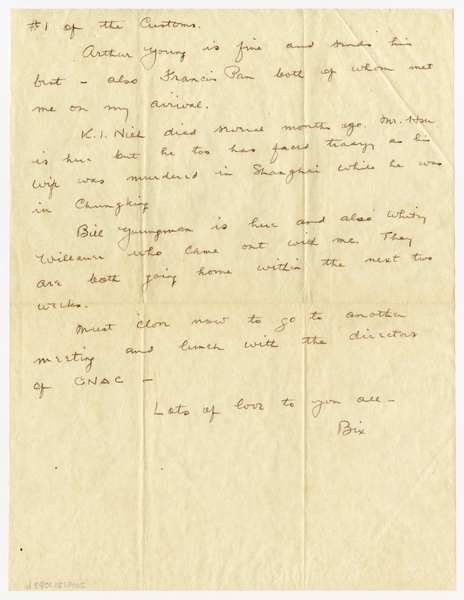 #1 of the Customs.
Arthur Young is fine and sends his
best - also Francis Pan both of whom met
me on my arrival.
K. I. Nieh died several months ago. Mr. Hsu
is here but he too has faced tragedy as his
wife was murdered in Shanghai while he was
in Chungking
Bill Youngman is here and also Whity
Willauer who came out with me. They
are both going home within the next two
weeks.
Must close now to go to another
meeting and lunch with the directors
of CNAC -
Lots of love to you all -
Bix